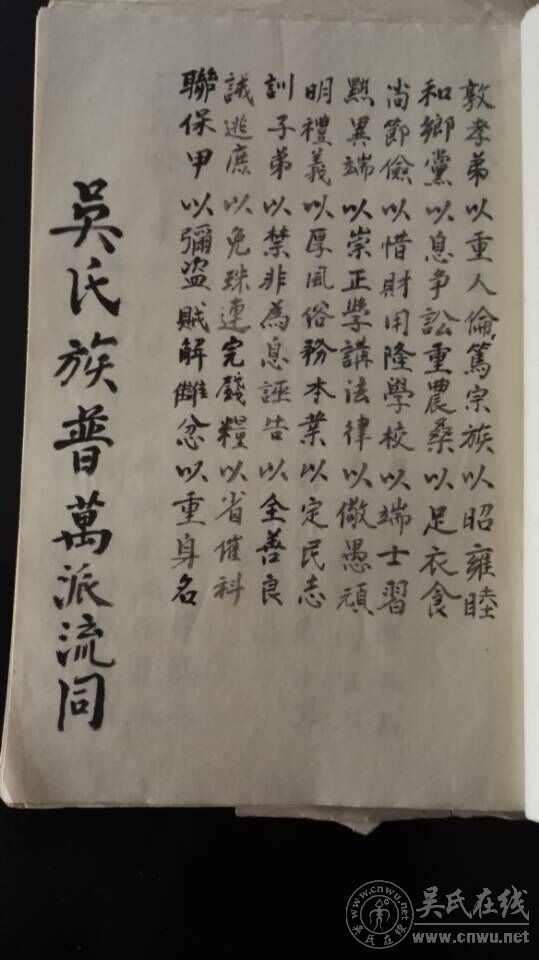 敦孝弟以重人倫篤宗族以昭雍睦
和鄉黨以息争訟重農桑以足衣食
尚節儉以惜財用隆學校以端士習
黜異端以崇正學講法律以儆愚頑
明禮義以厚風俗務本業以定民志
訓子弟以禁非為息誣告以全善良
誡逃庶以免珠連完錢糧以省催科
聯保甲以彌盗賊解雠忿以重身名
吳氏族普萬派流同
www.cnwu.net
吴氏在线
www.cnwu.net